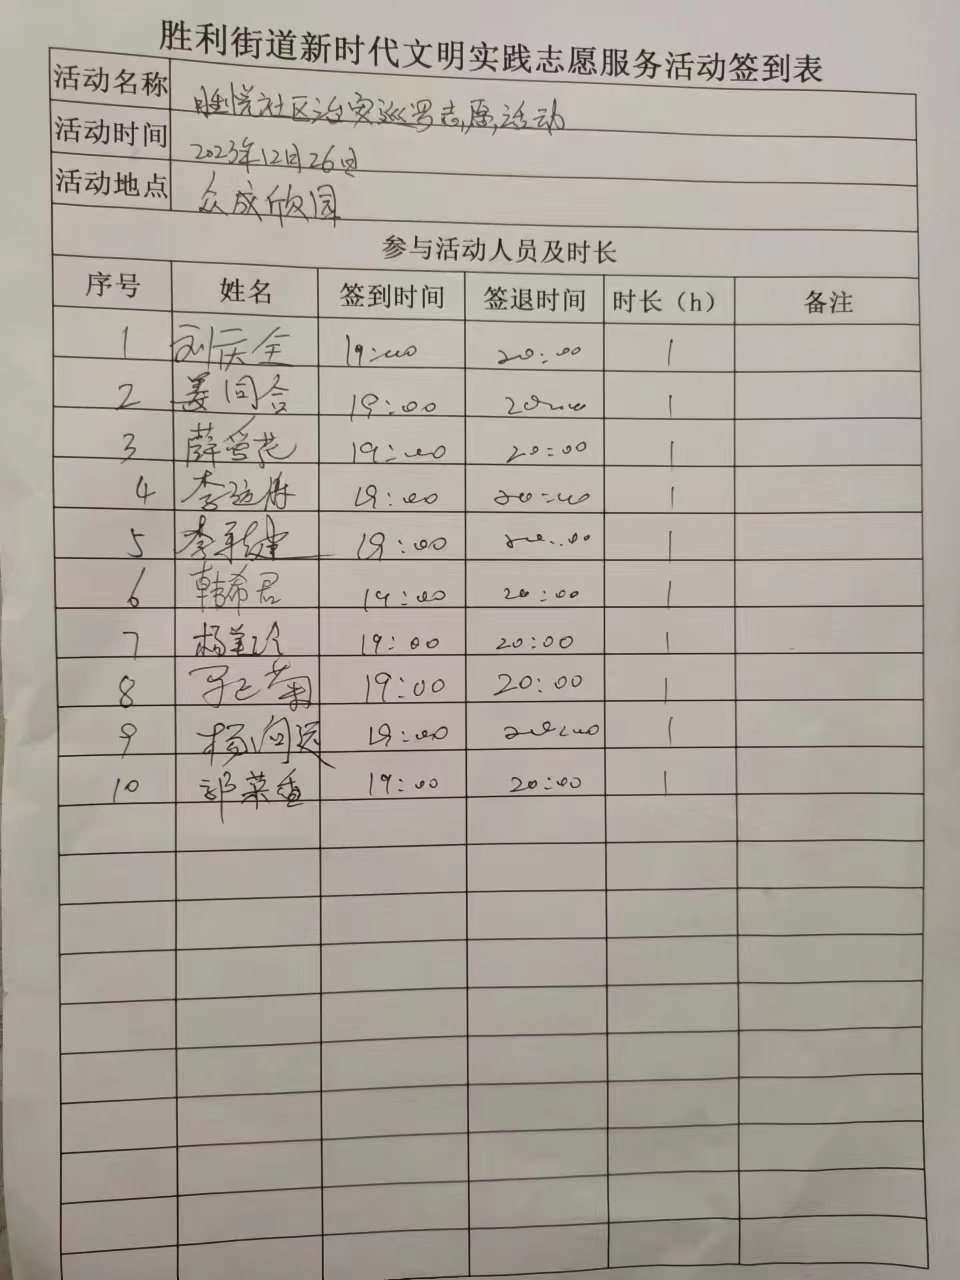 胜利街道新时代文明实践志愿服务活动签到表
活动名称 胜悦社区治安巡逻志愿活动
活动时间 2023年12月26日
活动地点 众成欣园
参与活动人员及时长
序号 姓名 签到时间 签退时间 时长（h） 备注
1 刘庆全 19:00 20:00 1
2 姜同合 19:00 20:00 1
3 薛雪花 19:00 20:00 1
4 李 19:00 20:00 1
5 李 19:00 20:00 1
6 韩希君 19:00 20:00 1
7 杨美玲 19:00 20:00 1
8 菊 19:00 20:00 1
9 杨向远 19:00 20:00 1
10 郭菜香 19:00 20:00 1